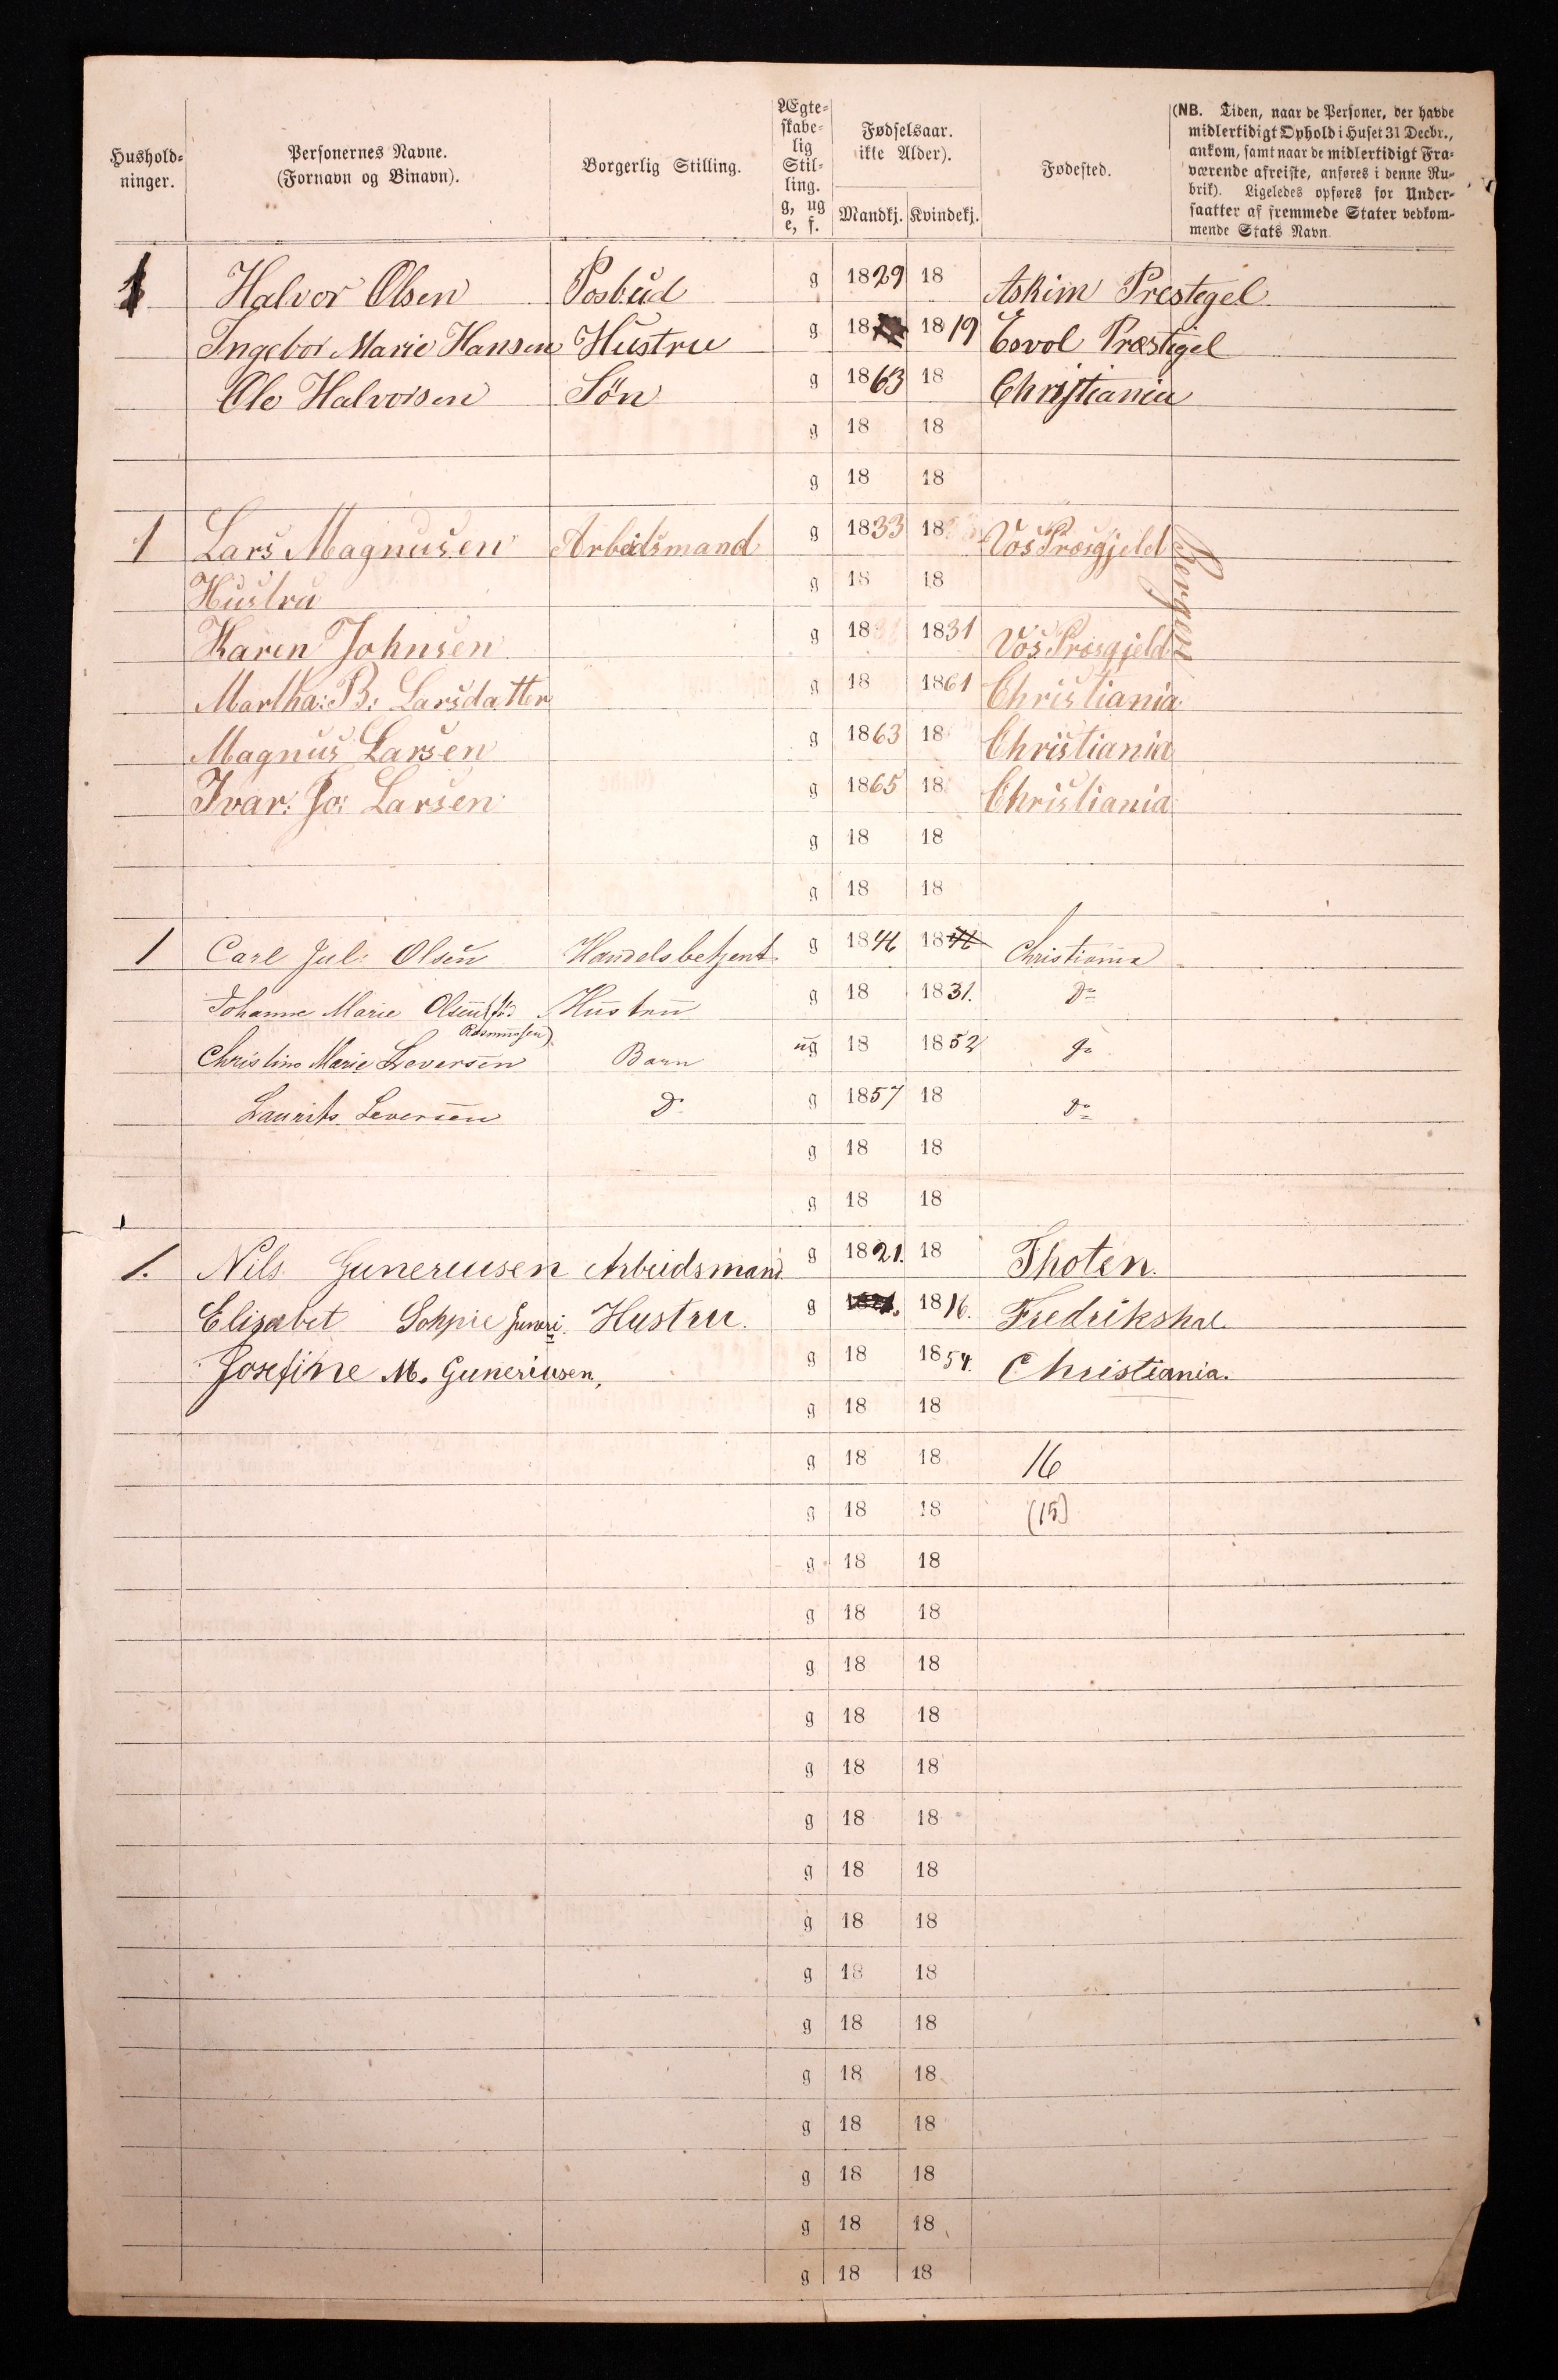 Hushold-
ninger.
Personernes Navne.
(Fornavn og Binavn).
Borgerlig Stilling.
Ægte-
skabe-
lig
Stil-
ling.
g, ug
e, f.
Fødselsaar.
ikke Alder).
Mandkj. Kvindekj.
Fødested.
(NB. Tiden, naar de Personer, der havde
midlertidigt Ophold i Huset 31 Decbr.,
ankom, samt naar de midlertidigt Fra-
værende afreiste, anføres i denne Ru-
brik). Ligeledes opføres for Under-
saatter af fremmede Stater vedkom-
mende Stats Navn.
1 Halvor Olsen Posbud g 1829 18 Askim Prestegel
Ingebor Marie Hansen Hustru g 18 1819 Esvol Præstigel
Ole Halvorsen Sön g 1863 18 Christiania
g 18 18
g 18 18
1 Lars Magnusen Arbeidsmand g 1833 18 Vos Præsgjeld Bergen
Hustru g 18 18
Karen Johnsen g 18 1831 Vos Præsgjeld
Martha: B: Larsdatter g 18 1861 Christiania
Magnus Larsen g 1863 18 Christiania
Ivar: Jo: Larsen g 1865 18 Christiania
g 18 18
g 18 18
1 Carl Jul: Olsen Handelsbetjent g 1841 18 Christiania
Johanne Marie Olsen (fød Hustru g 18 1831. Do
Rasmussen)
Christine Marie Leversen Barn ug 18 1852 Do
Laurits Leversen Do g 1857 18 Do
g 18 18
g 18 18
1. Nils Gunereusen Arbeidsmand g 1821. 18 Thoten.
Elisabet Sohpie Guneri. Hustru. g 1816. Fredrikshal
Josefine M. Guneriusen, g 18 1854. Christiania.
g 18 18
g 18 18 16
g 18 18 (15)
g 18 18
g 18 18
g 18 18
g 18 18
g 18 18
g 18 18
g 18 18
g 18 18
g 18 18
g 18 18
g 18 18
g 18 18
g 18 18
g 18 18
g 18 18